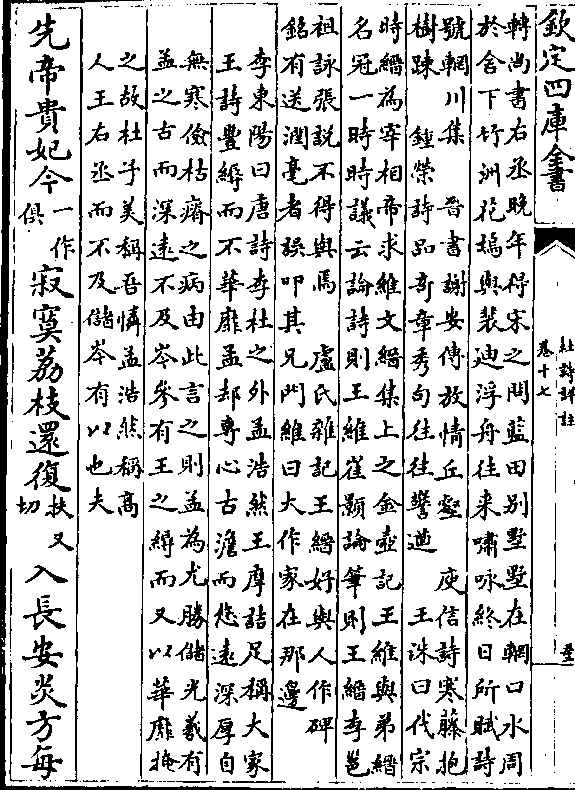 欽定四庫全書
杜詩詳註
卷十七
轉尚書右丞晚年得宋之問藍田别墅墅在輞口水周
於舍下竹洲花塢與裴迪浮舟往来嘯咏終日所賦詩
號輞川集　晉書謝安傳放情丘壑　庾信詩寒藤抱
樹疎　鍾榮詩品奇章秀句往往警遒　王洙曰代宗
時縉為宰相帝求維文縉集上之金壺記王維與弟縉
名冠一時時議云論詩則王維崔顥論筆則王縉李邕
祖詠張説不得與焉　盧氏雜記王縉好與人作碑
銘有送潤毫者誤叩其兄門維曰大作家在那邊
李東陽曰唐詩李杜之外孟浩然王摩詰足稱大家
王詩豐縟而不華靡孟却專心古澹而悠遠深厚自
無寒儉枯瘠之病由此言之則孟為尤勝儲光羲有
孟之古而深遠不及岑參有王之縟而又以華靡掩
之故杜子美稱吾憐孟浩然稱高
人王右丞而不及儲岑有以也夫
先帝貴妃今一作俱寂寞荔枝還復扶又切入長安炎方每